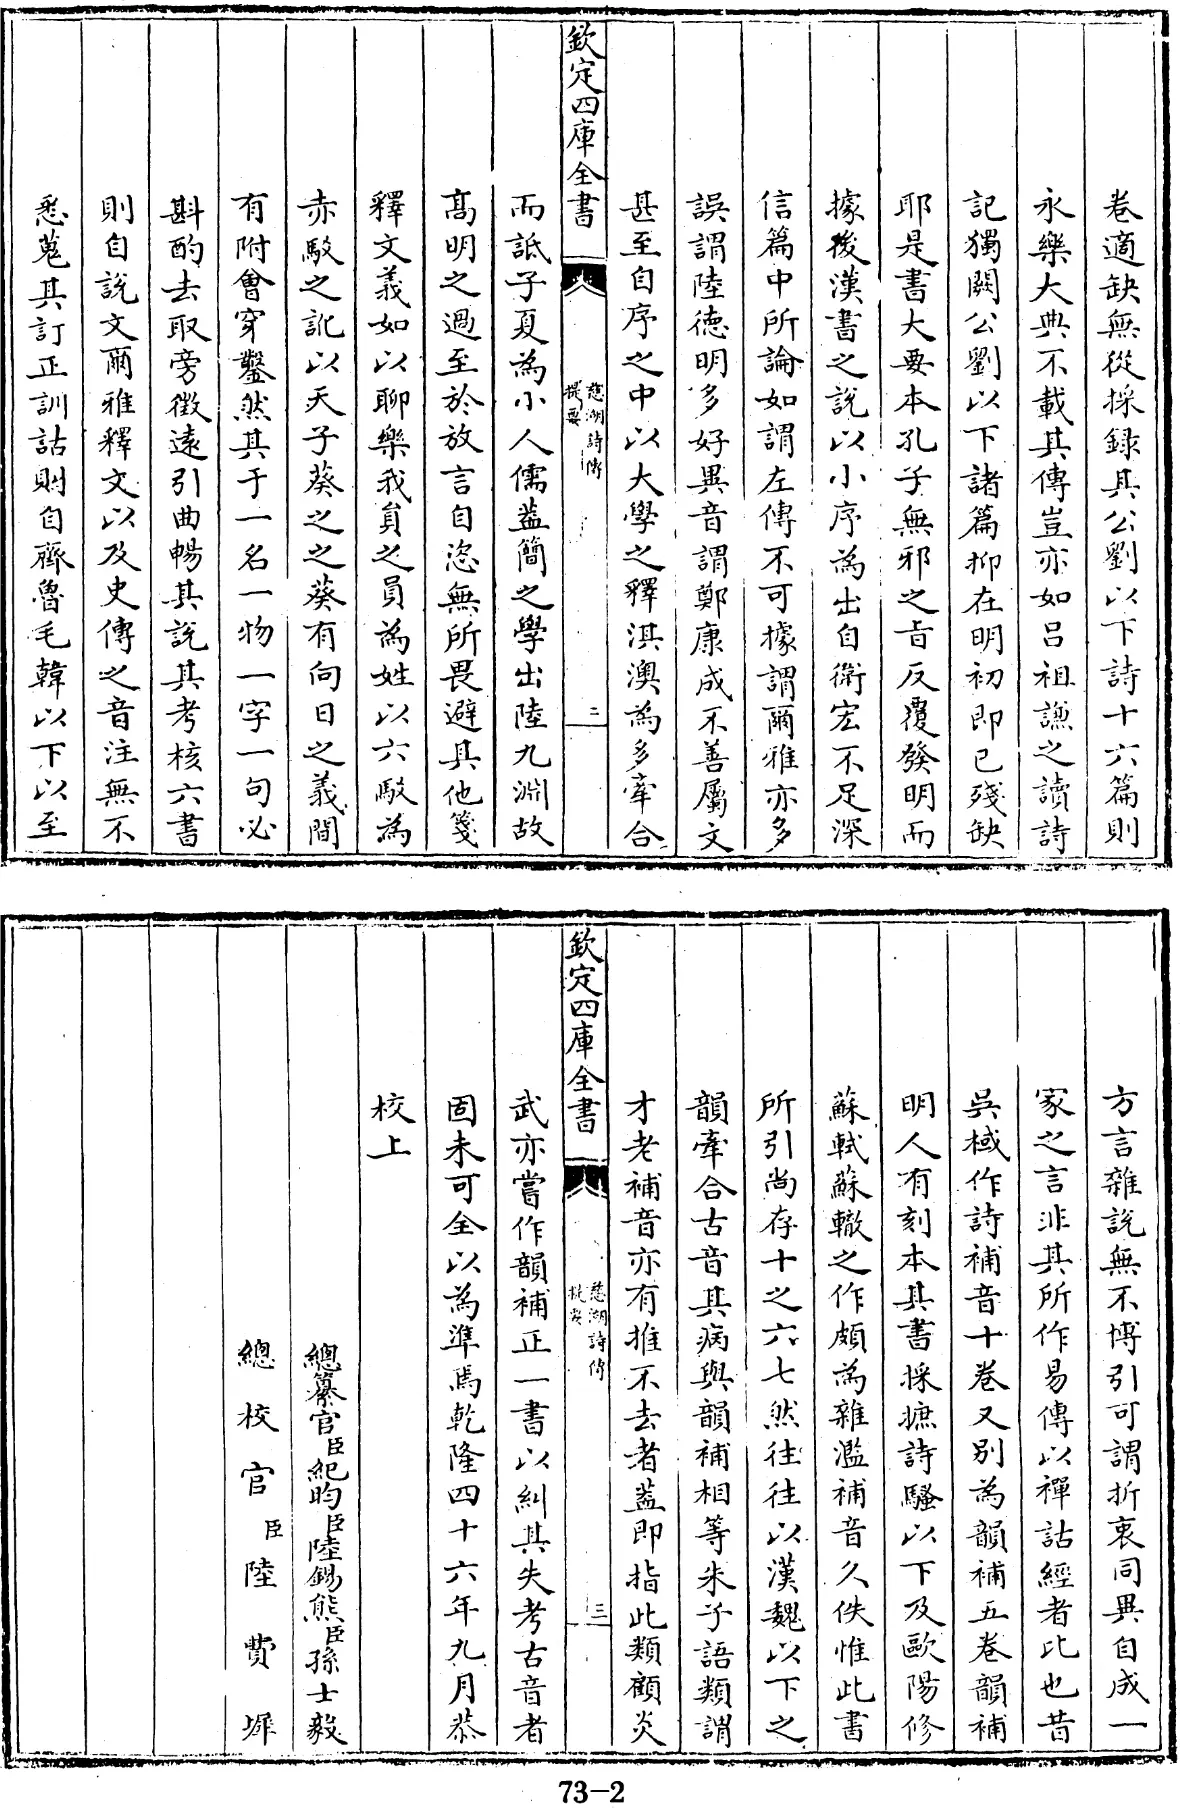 卷適缺無從採録其公劉以下詩十六篇則
永樂大典不載其傳豈亦如吕祖謙之讀詩
記獨闕公劉以下諸篇抑在明初即已殘缺
耶是書大要本孔子無邪之旨反覆發明而
據後漢書之說以小序為出自衛宏不足深
信篇中所論如謂左傳不可據謂爾雅亦多
誤謂陸德明多好異音謂鄭康成不善屬文
甚至自序之中以大學之釋淇澳為多牽合
欽定四庫全書
慈湖詩傳
提要
二
而詆子夏為小人儒蓋簡之學出陸九淵故
髙明之過至於放言自恣無所畏避其他箋
釋文義如以聊樂我員之員為姓以六駮為
赤駮之訛以天子葵之之葵有向日之義間
有附會穿鑿然其于一名一物一字一句必
斟酌去取旁徵遠引曲暢其說其考核六書
則自説文爾雅釋文以及史傳之音注無不
悉蒐其訂正訓詁則自齊魯毛韓以下以至
方言雜說無不博引可謂折衷同異自成一
家之言非其所作易傳以禪詁經者比也昔
吳棫作詩補音十卷又别為韻補五卷韻補
明人有刻本其書採摭詩騷以下及歐陽修
蘇軾蘇轍之作頗為雜濫補音久佚惟此書
所引尚存十之六七然往往以漢魏以下之
韻牽合古音其病與韻補相等朱子語類謂
才老補音亦有推不去者蓋即指此類顧炎
欽定四庫全書
慈湖詩傳
提要
三
武亦嘗作韻補正一書以糾其失考古音者
固未可全以為準焉乾隆四十六年九月恭
校上
總纂官臣紀昀臣陸錫熊臣孫士毅
總校官臣陸費墀
73-2